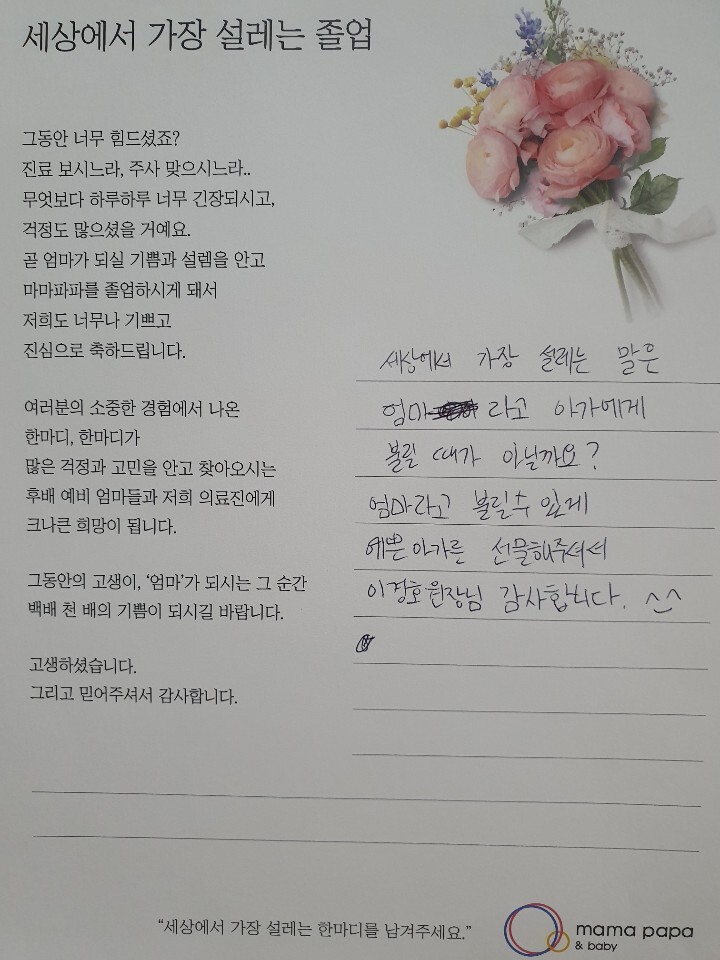 세상에서 가장 설레는 졸업
그동안 너무 힘드셨죠?
진료 보시느라, 주사 맞으시느라..
무엇보다 하루하루 너무 긴장되시고,
걱정도 많으셨을 거예요.
곧 엄마가 되실 기쁨과 설렘을 안고
마마파파를 졸업하시게 돼서
저희도 너무나 기쁘고
진심으로 축하드립니다.
여러분의 소중한 경험에서 나온
한마디, 한마디가
많은 걱정과 고민을 안고 찾아오시는
후배 예비 엄마들과 저희 의료진에게
크나큰 희망이 됩니다.
그동안의 고생이, ‘엄마’가 되시는 그 순간
백배 천 배의 기쁨이 되시길 바랍니다.
고생하셨습니다.
그리고 믿어주셔서 감사합니다.
세상에서 가장 설레는 말은
엄마 라고 아가에게
불릴 때가 아닐까요?
엄마라고 불릴수 있게
예쁜 아가를 선물해주셔서
이경호원장님 감사합니다. ^^
“세상에서 가장 설레는 한마디를 남겨주세요.”
mama papa
& baby